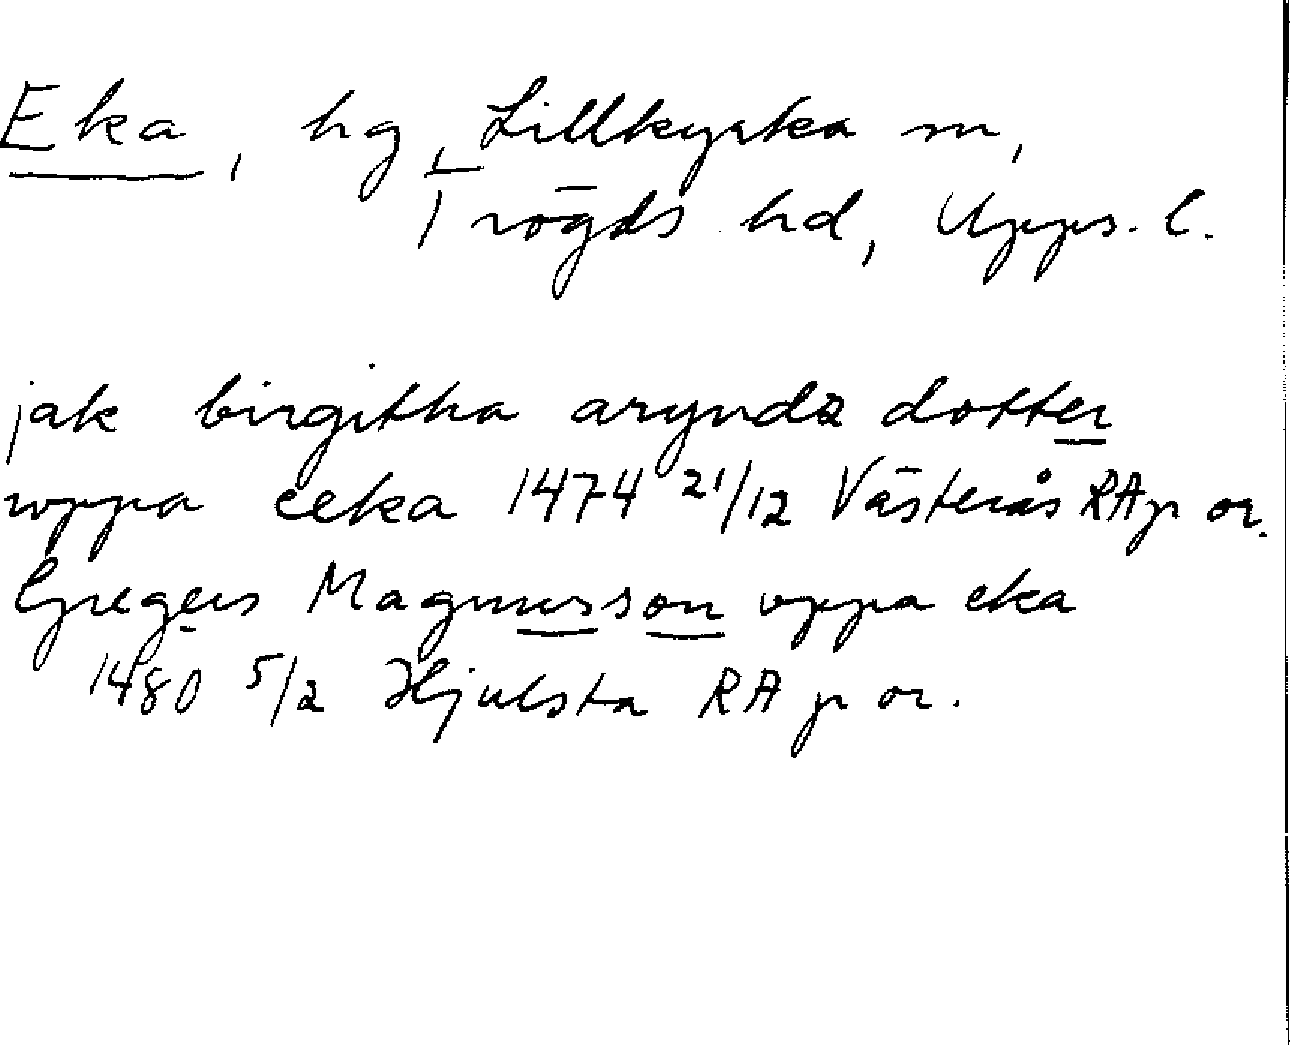 Eka, hg, Lillkyrka sn,
Trögds hd, Upps. l.
jak birgitha aryndz dotter
wppa eeka 1474 21/12 Västerås RAp or.
Gregers Magnusson vppa eka
1480 5/2 Hjulsta RAp or.